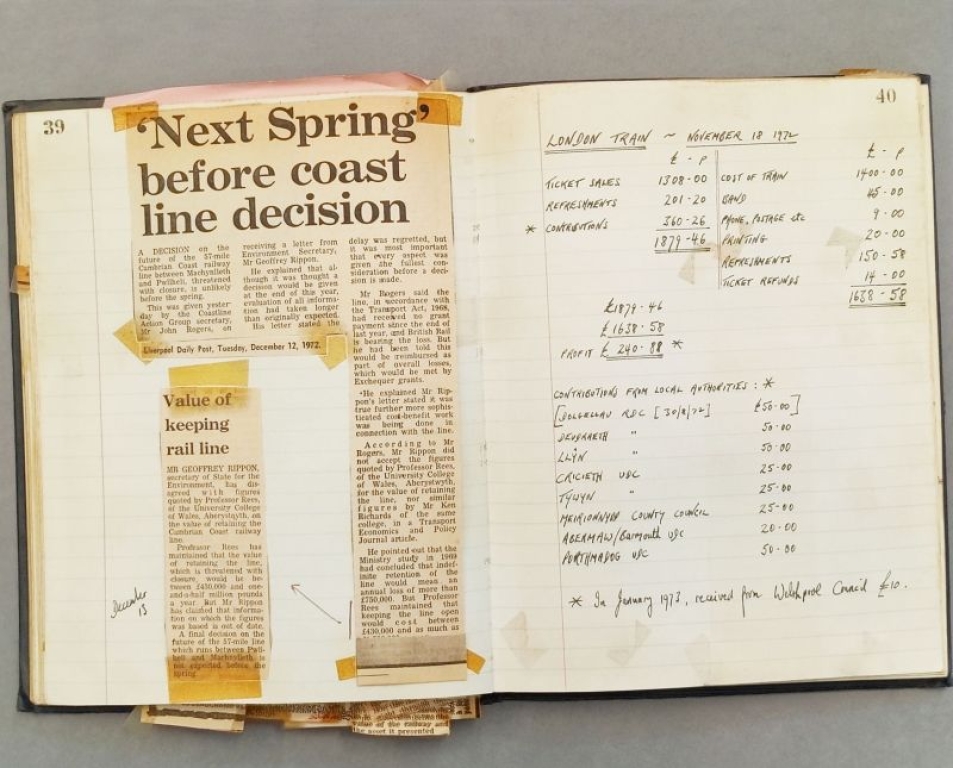 39
'Next Spring'
before coast
line decision
A DECISION on the
future of the 57-mile
Cambrian Coast railway
line between Machynlleth
and Pwllheli, threatened
with closure, is unlikely
before the spring.
This was given yester-
day by the Coastline
Action Group secretary,
Mr John Rogers, on
receiving a letter from
Environment Secretary,
Mr Geoffrey Rippon.
He explained that al-
though it was thought a
decision would be given
at the end of this year,
evaluation of all informa-
tion had taken longer
than originally expected.
His letter stated the
delay was regretted, but
it was most important
that every aspect was
given the fullest con-
sideration before a deci-
sion is made.
Mr Rogers said the
line, in accordance with
the Transport Act, 1968,
had received no grant
payment since the end of
last year, and British Rail
is bearing the loss. But
he had been told this
would be reimbursed as
part of overall losses,
which would be met by
Exchequer grants.
He explained Mr Rip-
pon's letter stated it was
true further more sophis-
ticated cost-benefit work
was being done in
connection with the line.
According to Mr
Rogers, Mr Rippon did
not accept the figures
quoted by Professor Rees,
of the University College
of Wales, Aberystwyth,
for the value of retaining
the line, nor similar
figures by Mr Ken
Richards of the same
college, in a Transport
Economics and Policy
Journal article.
He pointed out that the
Ministry study in 1969
had concluded that indef-
inite retention of the
line would mean an
annual loss of more than
£750,000. But Professor
Rees maintained that
keeping the line open
would cost between
£430,000 and as much as
Liverpool Daily Post, Tuesday, December 12, 1972.
Value of
keeping
rail line
MR GEOFFREY RIPPON,
secretary of State for the
Environment, has dis-
agreed with figures
quoted by Professor Rees,
of the University College
of Wales, Aberystwyth, on
the value of retaining the
Cambrian Coast railway
line.
Professor Rees has
maintained that the value
of retaining the line,
which is threatened with
closure, would be be-
tween £430,000 and one-
and-a-half million pounds
a year. But Mr Rippon
has claimed that informa-
tion on which the figures
was based is out of date.
A final decision on the
future of the 57-mile line
which runs between Pwll-
heli and Machynlleth is
not expected before the
spring.
December
13
value of the railway and
the asset it presented
40
LONDON TRAIN ~ NOVEMBER 18 1972
£ - P £ - P
TICKET SALES 1308-00 COST OF TRAIN 1400-00
REFRESHMENTS 201-20 BAND 45-00
* CONTRIBUTIONS 360-26 PHONE, POSTAGE etc 9-00
1879-46 PRINTING 20-00
REFRESHMENTS 150-58
TICKET REFUNDS 14-00
1638-58
£1879-46
£1638-58
PROFIT £ 240-88 *
CONTRIBUTIONS FROM LOCAL AUTHORITIES : *
[DOLGELLAU RDC [30/8/72] £50-00]
DEUDRAETH " 50-00
LLŶN " 50-00
CRICIETH UDC 25-00
TYWYN " 25-00
MEIRIONNYDD COUNTY COUNCIL 25-00
ABERMAW/Barmouth UDC 20-00
PORTHMADOG UDC 50-00
* In January 1973, received from Welshpool Council £10.